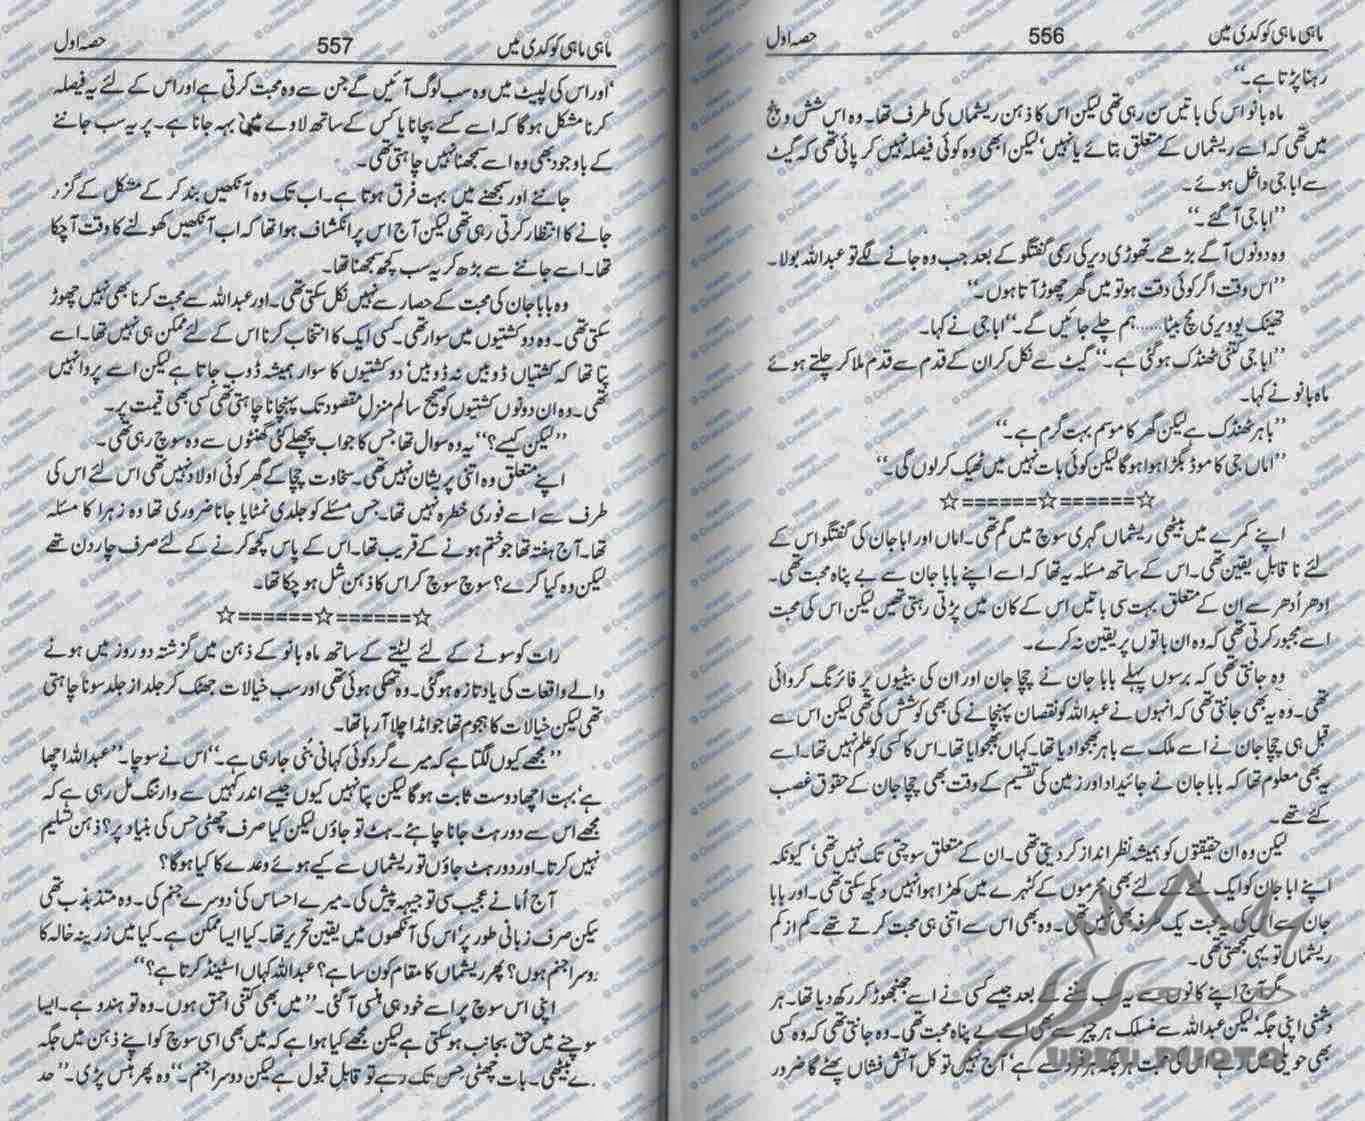 ماہی ماہی کوکدی میں 556 حصہ اول
رہنا پڑتا ہے۔‘‘
ماہ بانو اس کی باتیں سن رہی تھی لیکن اس کا ذہن ریشماں کی طرف تھا۔ وہ اس شش و پنج
میں تھی کہ اسے ریشماں کے متعلق بتائے یا نہیں‘ لیکن ابھی وہ کوئی فیصلہ نہیں کر پائی تھی کہ گیٹ
سے ابا جی داخل ہوئے۔
’’ابا جی آ گئے۔‘‘
وہ دونوں آگے بڑھے۔ تھوڑی دیر کی رسمی گفتگو کے بعد جب وہ جانے لگے تو عبداللہ بولا۔
’’اس وقت اگر کوئی دقت ہو تو میں گھر چھوڑ آتا ہوں۔‘‘
تھینک یو ویری مچ بیٹا...... ہم چلے جائیں گے۔‘‘ ابا جی نے کہا۔
’’ابا جی کتنی ٹھنڈک ہو گئی ہے۔‘‘ گیٹ سے نکل کر ان کے قدم سے قدم ملا کر چلتے ہوئے
ماہ بانو نے کہا۔
’’باہر ٹھنڈک ہے لیکن گھر کا موسم بہت گرم ہے۔‘‘
’’اماں جی کا موڈ بگڑا ہوا ہو گا لیکن کوئی بات نہیں میں ٹھیک کر لوں گی۔‘‘
☆======☆======☆
اپنے کمرے میں بیٹھی ریشماں گہری سوچ میں گم تھی۔ اماں اور ابا جان کی گفتگو اس کے
لئے نا قابل یقین تھی۔ اس کے ساتھ مسئلہ یہ تھا کہ اسے اپنے بابا جان سے بے پناہ محبت تھی۔
ادھر اُدھر سے ان کے متعلق بہت سی باتیں اس کے کان میں پڑتی رہتی تھیں لیکن اس کی محبت
اسے مجبور کرتی تھی کہ وہ ان باتوں پر یقین نہ کرے۔
وہ جانتی تھی کہ برسوں پہلے بابا جان نے چچا جان اور ان کی بیٹیوں پر فائرنگ کروائی
تھی۔ وہ یہ بھی جانتی تھی کہ انہوں نے عبداللہ کو نقصان پہنچانے کی بھی کوشش کی تھی لیکن اس سے
قبل ہی چچا جان نے اسے ملک سے باہر بھجوا دیا تھا۔ کہاں بھجوایا تھا۔ اس کا کسی کو علم نہیں تھا۔ اسے
یہ بھی معلوم تھا کہ بابا جان نے جائیداد اور زمین کی تقسیم کے وقت بھی چچا جان کے حقوق غصب
کئے تھے۔
لیکن وہ ان حقیقتوں کو ہمیشہ نظر انداز کر دیتی تھی۔ ان کے متعلق سوچتی تک نہیں تھی‘ کیونکہ
اپنے ابا جان کو ایک لئے بھی مجرموں کے کٹہرے میں کھڑا ہوا نہیں دیکھ سکتی تھی۔ اور بابا
جان سے اس کی یہ محبت یک طرفہ بھی نہیں تھی۔ وہ بھی اس سے اتنی ہی محبت کرتے تھے۔ کم از کم
ریشماں تو یہی سمجھتی تھی۔
مگر آج اپنے کانوں سے یہ سب سننے کے بعد جیسے کسی نے اسے جھنجھوڑ کر رکھ دیا تھا۔ ہر
دشمنی اپنی جگہ‘ لیکن عبداللہ سے منسلک ہر چیز سے بھی اسے بے پناہ محبت تھی۔ وہ جانتی تھی کہ وہ کسی
بھی حویلی میں رہے اس کی محبت ہر جگہ ہے‘ آج نہیں تو کل آتش فشاں پھٹے گا ضرور
URDU PHOTO
ماہی ماہی کوکدی میں 557 حصہ اول
‘اور اس کی لپیٹ میں وہ سب لوگ آئیں گے جن سے وہ محبت کرتی ہے اور اس کے لئے یہ فیصلہ
کرنا مشکل ہو گا کہ اسے کسے بچانا یا کس کے ساتھ لاوے میں بہہ جانا ہے۔ پر یہ سب جاننے
کے باوجود بھی وہ اسے سمجھنا نہیں چاہتی تھی۔
جاننے اور سمجھنے میں بہت فرق ہوتا ہے۔ اب تک وہ آنکھیں بند کر کے مشکل کے گزر
جانے کا انتظار کرتی رہی تھی لیکن آج اس پر انکشاف ہوا تھا کہ اب آنکھیں کھولنے کا وقت آ چکا
تھا۔ اسے جاننے سے بڑھ کر یہ سب کچھ سمجھنا تھا۔
وہ بابا جان کی محبت کے حصار سے نہیں نکل سکتی تھی۔ اور عبداللہ سے محبت کرنا بھی نہیں چھوڑ
سکتی تھی۔ وہ دو کشتیوں میں سوار تھی۔ کسی ایک کا انتخاب کرنا اس کے لئے ممکن ہی نہیں تھا۔ اسے
پتا تھا کہ کشتیاں ڈوبیں نہ ڈوبیں‘ دو کشتیوں کا سوار ہمیشہ ڈوب جاتا ہے لیکن اسے پروا نہیں
تھی۔ وہ ان دونوں کشتیوں کو صحیح سالم منزل مقصود تک پہنچانا چاہتی تھی کسی بھی قیمت پر۔
’’لیکن کیسے؟‘‘ یہ وہ سوال تھا جس کا جواب پچھلے کئی گھنٹوں سے وہ سوچ رہی تھی۔
اپنے متعلق وہ اتنی پریشان نہیں تھی۔ سخاوت چچا کے گھر کوئی اولاد نہیں تھی اس لئے اس کی
طرف سے اسے فوری خطرہ نہیں تھا۔ جس مسئلے کو جلدی نمٹایا جانا ضروری تھا وہ زہرا کا مسئلہ
تھا۔ آج ہفتہ تھا جو ختم ہونے کے قریب تھا۔ اس کے پاس کچھ کرنے کے لئے صرف چار دن تھے
لیکن وہ کیا کرے؟ سوچ سوچ کر اس کا ذہن شل ہو چکا تھا۔
☆======☆======☆
رات کو سونے کے لئے لیٹتے کے ساتھ ماہ بانو کے ذہن میں گزشتہ دو روز میں ہونے
والے واقعات کی یاد تازہ ہو گئی۔ وہ تھکی ہوئی تھی اور سب خیالات جھٹک کر جلد از جلد سونا چاہتی
تھی لیکن خیالات کا ہجوم تھا جو امڈا چلا آ رہا تھا۔
’’مجھے کیوں لگتا ہے کہ میرے گرد کوئی کہانی بُنی جا رہی ہے۔‘‘ اس نے سوچا۔ ’’عبداللہ اچھا
ہے‘ بہت اچھا دوست ثابت ہو گا لیکن پتا نہیں کیوں جیسے اندر کہیں سے وارننگ مل رہی ہے کہ
مجھے اس سے دور ہٹ جانا چاہئے۔ ہٹ تو جاؤں لیکن کیا صرف چھٹی حس کی بنیاد پر؟ ذہن تسلیم
نہیں کرتا۔ اور دور ہٹ جاؤں تو ریشماں سے کیے ہوئے وعدے کا کیا ہو گا؟
آج اُما نے عجیب سی توجیہہ پیش کی۔ میرے احساس کی‘ دوسرے جنم کی۔ وہ متذبذب تھی
لیکن صرف زبانی طور پر‘ اس کی آنکھوں میں یقین تحریر تھا۔ کیا ایسا ممکن ہے۔ کیا میں زرینہ خالہ کا
دوسرا جنم ہوں؟ پھر ریشماں کا مقام کون سا ہے؟ عبداللہ کہاں اسٹینڈ کرتا ہے؟‘‘
اپنی اس سوچ پر اسے خود ہی ہنسی آ گئی۔ ’’میں بھی کتنی احمق ہوں۔ وہ تو ہندو ہے۔ ایسا
سوچنے میں حق بجانب ہو سکتی ہے لیکن مجھے کیا ہوا ہے کہ میں بھی اسی سوچ کو اپنے ذہن میں جگہ
دے بیٹھی۔ بات چھٹی حس تک رہے تو قابل قبول ہے لیکن دوسرا جنم۔‘‘ وہ پھر ہنس پڑی۔ ’’حد